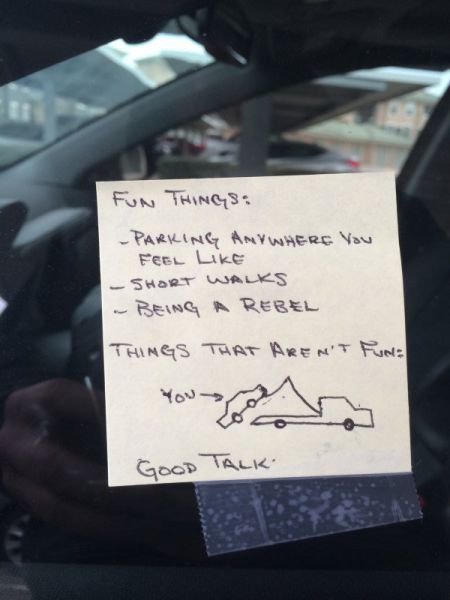 FUN THINGS:
- PARKING ANYWHERE YOU
FEEL LIKE
- SHORT WALKS
- BEING A REBEL
THINGS THAT AREN'T FUN:
YOU →
GOOD TALK.